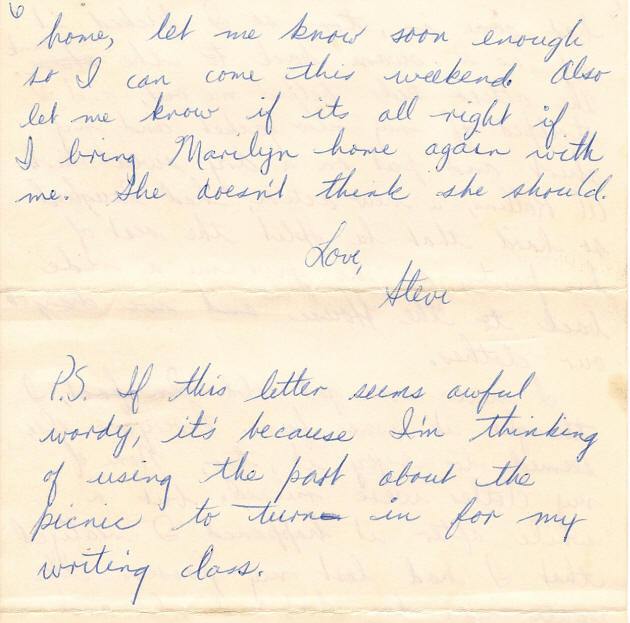 6
home, let me know soon enough
so I can come this weekend. Also
let me know if its all right if
I bring Marilyn home again with
me. She doesn't think she should.
Love,
Steve
P.S. If this letter seems awful
wordy, it's because I'm thinking
of using the part about the
picnic to turn in for my
writing class.